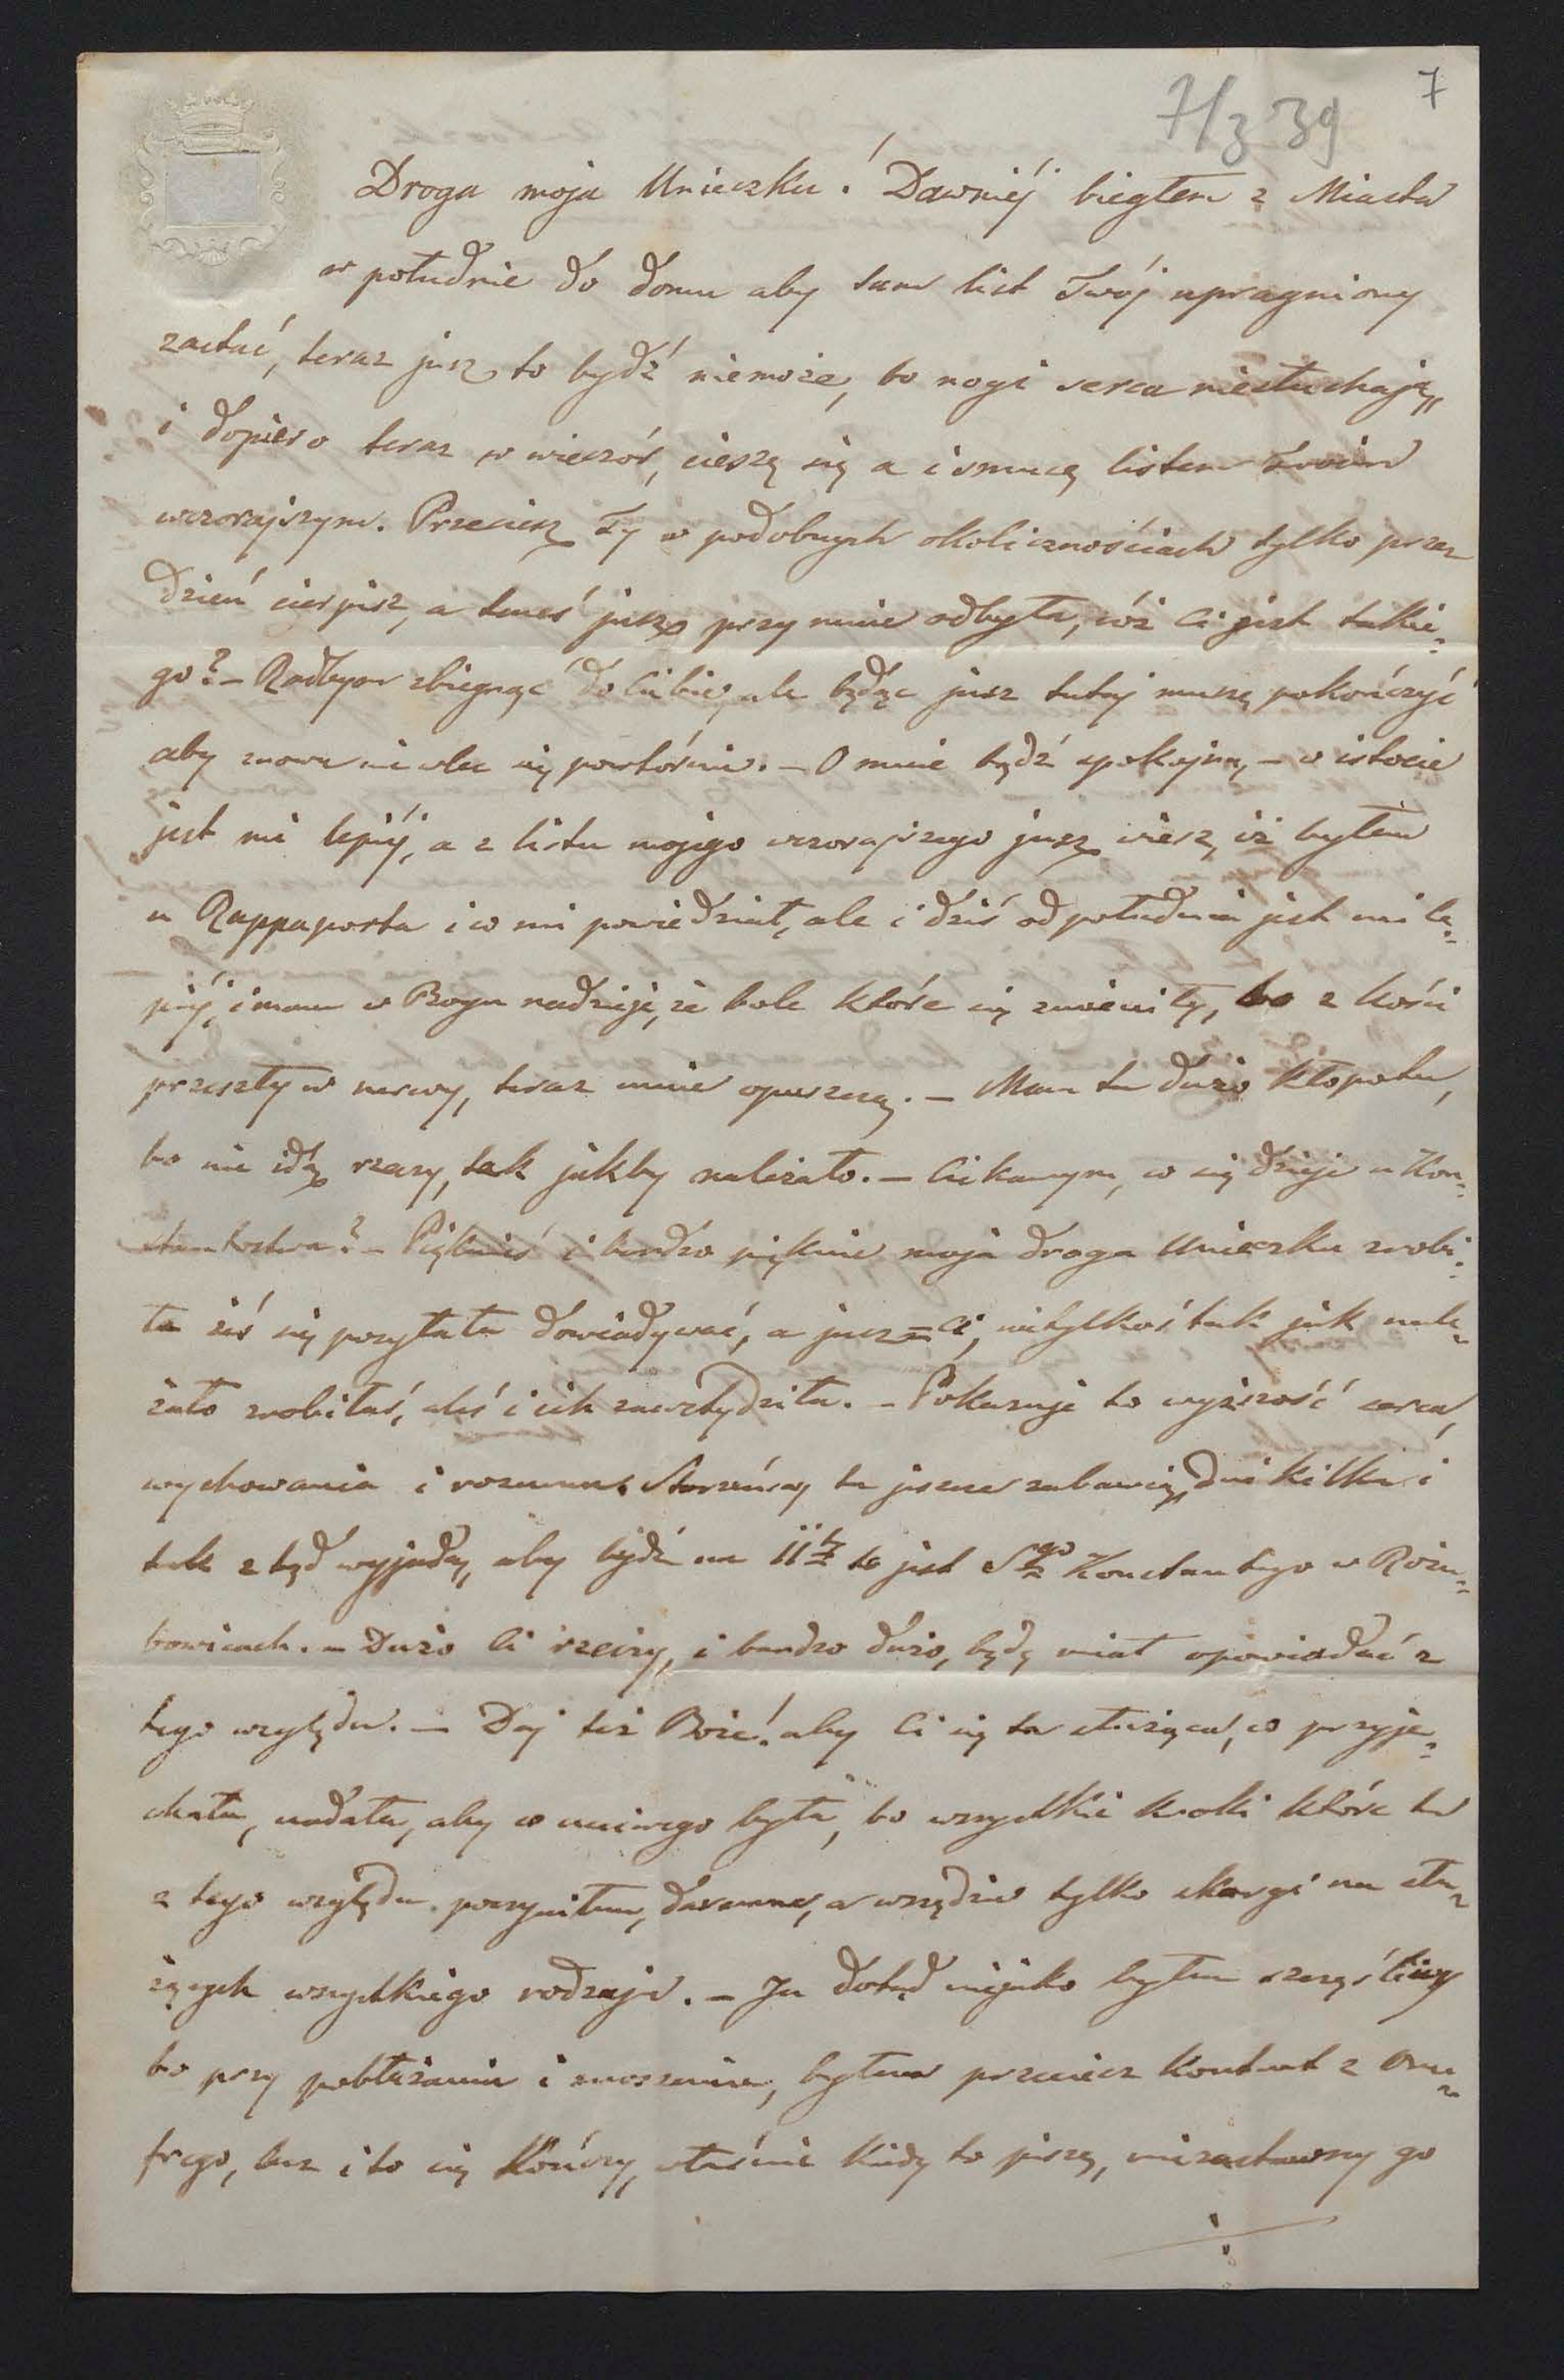 7
7/3 39
Droga moja Unieczku! Dawniéj biegłem z Miasta
w południe do domu aby tam list Twój upragniony
zastać, teraz jusz to bydź niemoże, bo nogi serca niesłuchają,
i dopiero teraz w wieczór, cieszę się a i smucę listem Twoim
wczorajszym. Przeciesz Ty w podobnych okolicznościach tylko przez
dzień cierpisz, a tenes jusz przy mnie odbyła, cóż Ci jest takie-
go? – Radbym zbiegnąć do Ciebie, ale będąc jusz tutaj muszę pokończyć
aby znowu nie wlec się powtórnie. – O mnie bądź spokojna, – w istocie
jest mi lepiéj, a z listu mojego wczorajszego jusz wiesz, iż byłem
u Rappaporta i co mi powiedział, ale i dziś od południa jest mi le-
piéj, i mam w Bogu nadzieję, że bole które się zmieniły, bo z kości
przeszły w nerwy, teraz mnie opuszczą. – Mam tu dużo kłopotu,
bo nie idą rzeczy, tak jakby należało. – Ciekawym, co się dzieje u Kon-
stantostwa? – Pięknieś i bardzo pięknie moja droga Unieczku zrobi-
ła żeś się posyłała dowiadywać, a jusz=ci, nietylkoś tak jak nale-
żało zrobiłaś, aleś i ich zawstydziła. – Pokazuje to wyższość serca,
wychowania i rozumu. Starzeńscy tu jeszcze zabawią dni kilka i
tak z tąd wyjadą, aby bydź na 11 to jest Sgo Konstantego w Rożu-
bowicach. – Dużo Ci rzeczy, i bardzo dużo, będę miał opowiadać z
tego względu. – Daj też Boże! aby Ci się ta służąca, co przyje-
chała, udała, aby co uczciwego była, bo wszystkie kroki które tu
z tego względu poczyniłem, daremne, a wszędzie tylko skargi na słu-
żących wszystkiego rodzaju. – Ja dotąd niejako byłem szczęśliwy
bo przy pobłażaniu i znoszeniu, byłem przeciesz kontent z Onu-
frego, lecz i to się kończy, właśnie kiedy to piszę, niezastawszy go